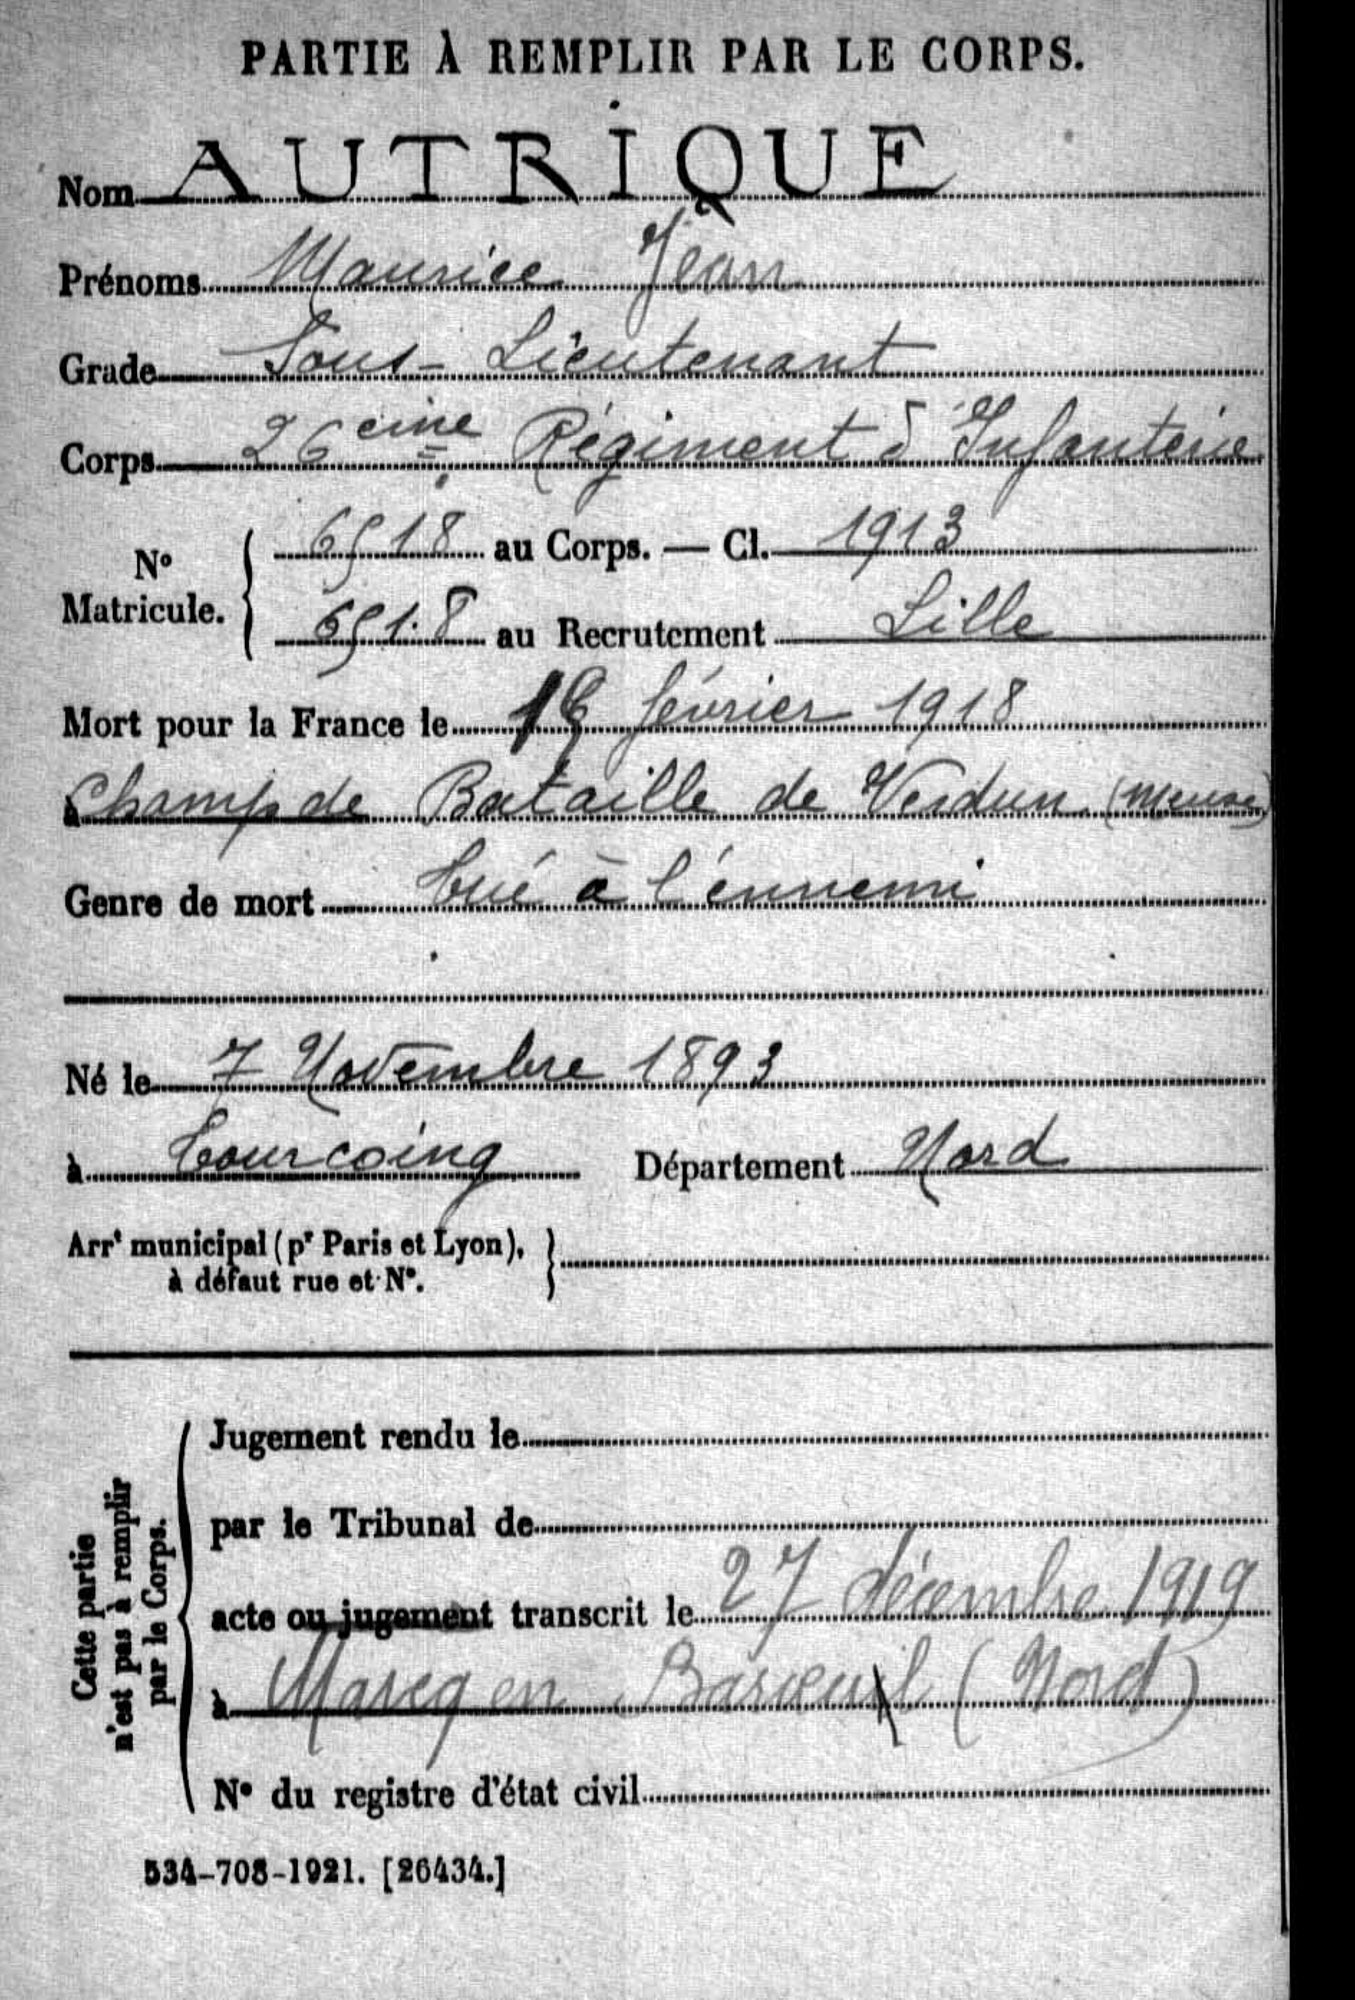 PARTIE À REMPLIR PAR LE CORPS.
Nom AUTRIQUE
Prénoms Maurice Jean
Grade Sous-Lieutenant
Corps 26ème Régiment d'Infanterie
N° Matricule. 6518 au Corps. — Cl. 1913
6518 au Recrutement Lille
Mort pour la France le février 1918
à Champ de Bataille de Verdun (Meuse)
Genre de mort tué à l'ennemi
Né le 7 Novembre 1893
à Tourcoing Département Nord
Arrt municipal (pr Paris et Lyon),
à défaut rue et N°.
Cette partie
n'est pas à remplir
par le Corps.
Jugement rendu le
par le Tribunal de
acte ou jugement transcrit le 27 décembre 1919
à Marcq en Baroeuil (Nord)
N° du registre d'état civil
534-708-1921. [26434.]